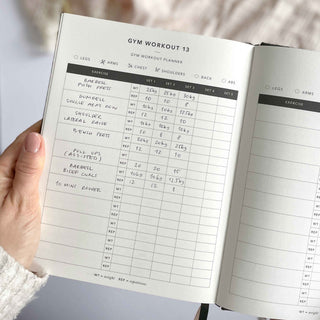 GYM WORKOUT 13
GYM WORKOUT PLANNER
LEGS ARMS CHEST SHOULDERS BACK ABS
EXERCISE SET 1 SET 2 SET 3 SET 4 SET 5
BARBELL WT 20kg 25kg 30kg
PUSH PRESS REP 10 10 8
DUMBELL WT 10kg 10kg 12.5kg
SINGLE ARM ROW REP 12 12 10
SHOULDER WT
LATERAL RAISE REP 10 8 8
BENCH PRESS WT
REP 12 12 10
PULL UPS WT
(ASSISTED) REP 20 20 15
BARBELL WT 10kg 10kg 12.5kg
BICEP CURLS REP 12 12 8
10 MINS ROWER WT
REP
WT
REP
WT
REP
WT
REP
WT
REP
WT = weight REP = repetitions
EXERCISE